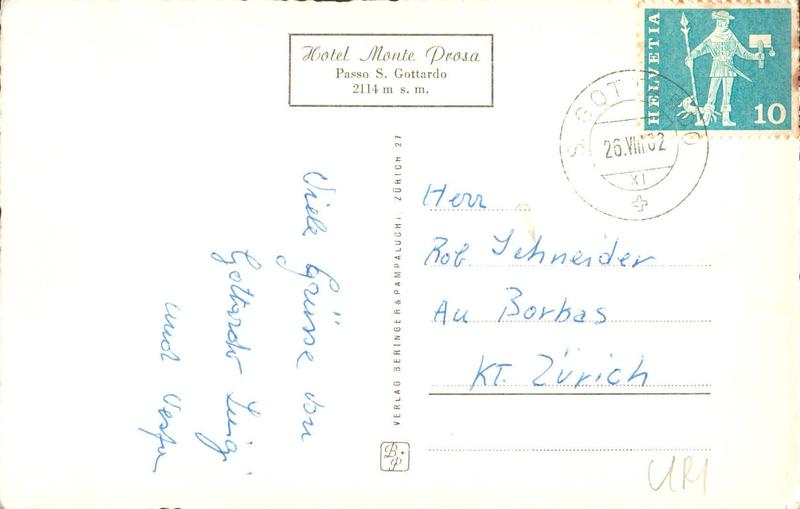 Hotel Monte Prosa
Passo S. Gottardo
2114 m s. m.
HELVETIA
10
S. GOTTARDO
26.VIII.62
XI
Viele Grüsse von
Gottardo Luigi
und
VERLAG BERINGER & PAMPALUCHI, ZÜRICH 27
B+P
Herr
Rob Schneider
Au Borbas
KT. Zürich
URI